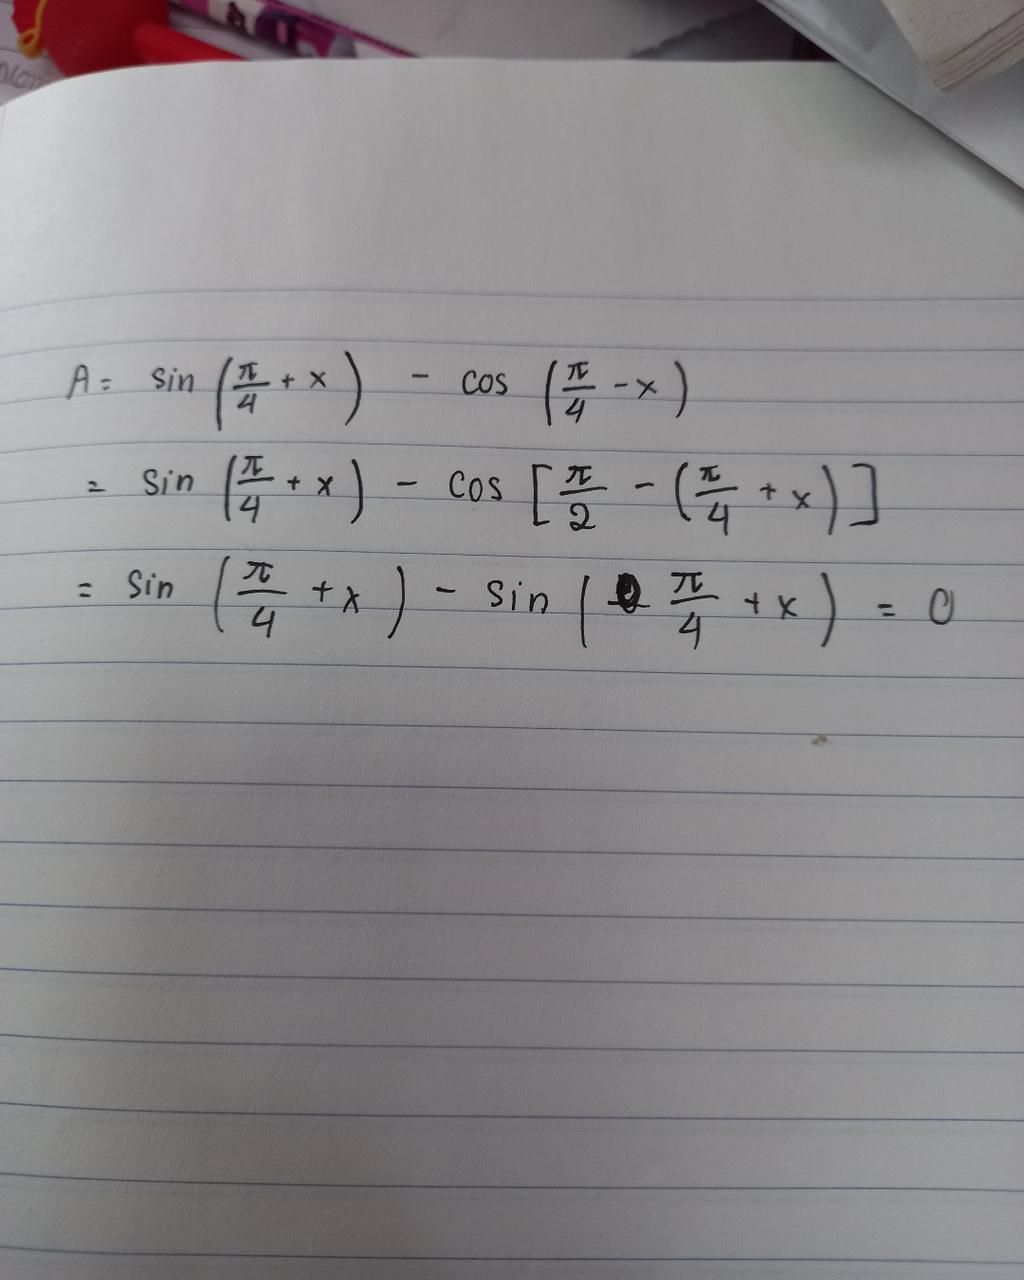 A = sin (π/4 + x) - cos (π/4 - x)
= sin (π/4 + x) - cos [π/2 - (π/4 + x)]
= sin (π/4 + x) - sin (π/4 + x) = 0